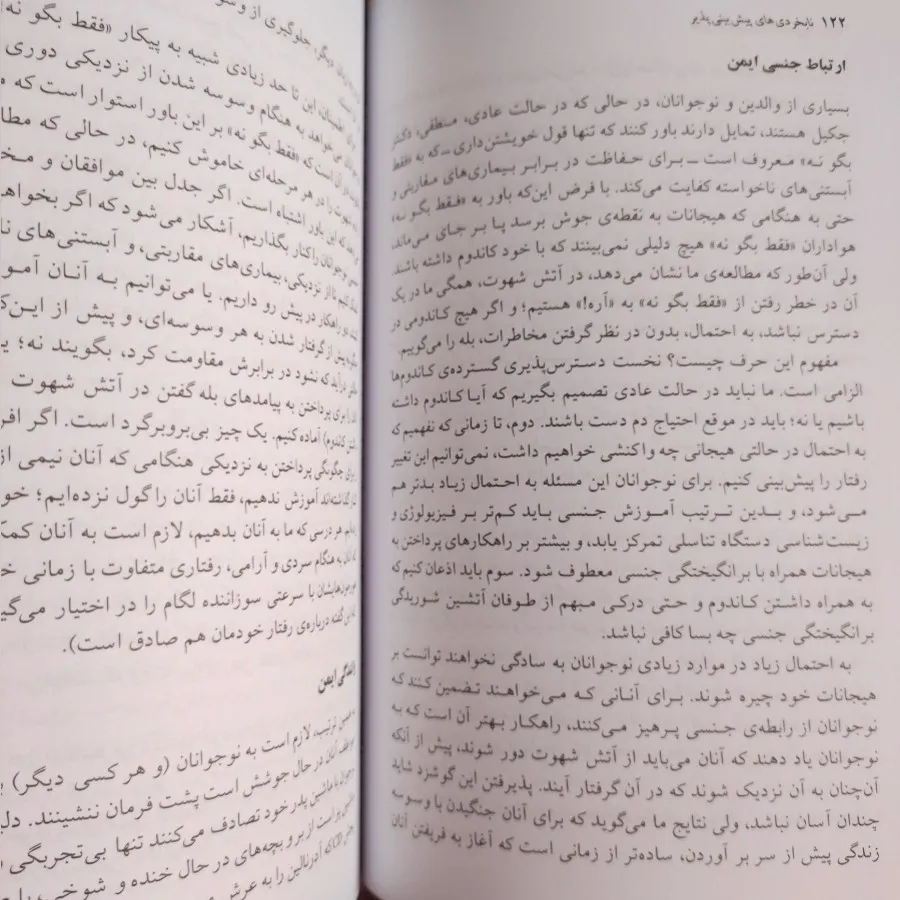 ۱۲۲ نابخردی‌های پیش‌بینی‌پذیر
ارتباط جنسی ایمن
بسیاری از والدین و نوجوانان، در حالی که در حالت عادی، منطقی، دکتر
جکیل هستند، تمایل دارند باور کنند که تنها قول خویشتن‌داری ــ که به «فقط
بگو نه» معروف است ــ برای حفاظت در برابر بیماری‌های مقاربتی و
آبستنی‌های ناخواسته کفایت می‌کند. با فرض این‌که باور به «فقط بگو نه»
حتی به هنگامی که هیجانات به نقطه‌ی جوش برسد پا بر جای می‌ماند،
هواداران «فقط بگو نه» هیچ دلیلی نمی‌بینند که با خود کاندوم داشته باشند.
ولی آن‌طور که مطالعه‌ی ما نشان می‌دهد، در آتش شهوت، همگی ما در یک
آن در خطر رفتن از «فقط بگو نه» به «آره!» هستیم؛ و اگر هیچ کاندومی در
دسترس نباشد، به احتمال، بدون در نظر گرفتن مخاطرات، بله را می‌گوییم.
مفهوم این حرف چیست؟ نخست دسترس‌پذیری گسترده‌ی کاندوم‌ها
الزامی است. ما نباید در حالت عادی تصمیم بگیریم که آیا کاندوم داشته
باشیم یا نه؛ باید در موقع احتیاج دم دست باشند. دوم، تا زمانی که نفهمیم که
به احتمال در حالتی هیجانی چه واکنشی خواهیم داشت، نمی‌توانیم این تغییر
رفتار را پیش‌بینی کنیم. برای نوجوانان این مسئله به احتمال زیاد بدتر هم
می‌شود، و بدین ترتیب آموزش جنسی باید کم‌تر بر فیزیولوژی و
زیست‌شناسی دستگاه تناسلی تمرکز یابد، و بیشتر بر راهکارهای پرداختن به
هیجانات همراه با برانگیختگی جنسی معطوف شود. سوم باید اذعان کنیم که
به همراه داشتن کاندوم و حتی درکی مبهم از طوفان آتشین شوریدگی
برانگیختگی جنسی چه بسا کافی نباشد.
به احتمال زیاد در موارد زیادی نوجوانان به سادگی نخواهند توانست بر
هیجانات خود چیره شوند. برای آنانی که می‌خواهند تضمین کنند که
نوجوانان از رابطه‌ی جنسی پرهیز می‌کنند، راهکار بهتر آن است که به
نوجوانان یاد دهند که آنان می‌باید از آتش شهوت دور شوند، پیش از آنکه
آن‌چنان به آن نزدیک شوند که در آن گرفتار آیند. پذیرفتن این گوشزد شاید
چندان آسان نباشد، ولی نتایج ما می‌گوید که برای آنان جنگیدن با وسوسه
زندگی پیش از سر بر آوردن، ساده‌تر از زمانی است که آغاز به فریفتن آنان
دیگر، جلوگیری از وسو
این تا حد زیادی شبیه به پیکار «فقط بگو نه
می‌خواهد به هنگام وسوسه شدن از نزدیکی دوری
آن است که «فقط بگو نه» بر این باور استوار است که م
شهوت را در هر مرحله‌ای خاموش کنیم، در حالی که مطا
که این باور اشتباه است. اگر جدل بین موافقان و مخ
نوجوانان را کنار بگذاریم، آشکار می‌شود که اگر بخواه
کنیم تا از نزدیکی، بیماری‌های مقاربتی، و آبستنی‌های نا
دو راهکار در پیش رو داریم. یا می‌توانیم به آنان آمو
پیش از گرفتار شدن به هر وسوسه‌ای، و پیش از این‌ک
درآید که نشود در برابرش مقاومت کرد، بگویند نه؛ ی
برای پرداختن به پیامدهای بله گفتن در آتش شهوت
کاندوم) آماده کنیم. یک چیز بی‌بروبرگرد است. اگر افر
چگونگی پرداختن به نزدیکی هنگامی که آنان نیمی از
آموزش ندهیم، فقط آنان را گول نزده‌ایم؛ خو
هر درسی که ما به آنان بدهیم، لازم است به آنان کمک
به هنگام سردی و آرامی، رفتاری متفاوت با زمانی خ
هورمون‌هایشان با سرعتی سوزاننده لگام را در اختیار می‌گی
گفته درباره‌ی رفتار خودمان هم صادق است).
رانندگی ایمن
به همین ترتیب، لازم است به نوجوانان (و هر کسی دیگر) ی
در حال جوشش است پشت فرمان ننشینند. دلی
با ماشین پدر خود تصادف می‌کنند تنها بی‌تجربگی
پر است از بر و بچه‌های در حال خنده و شوخی، با
که آدرنالین را به عرش